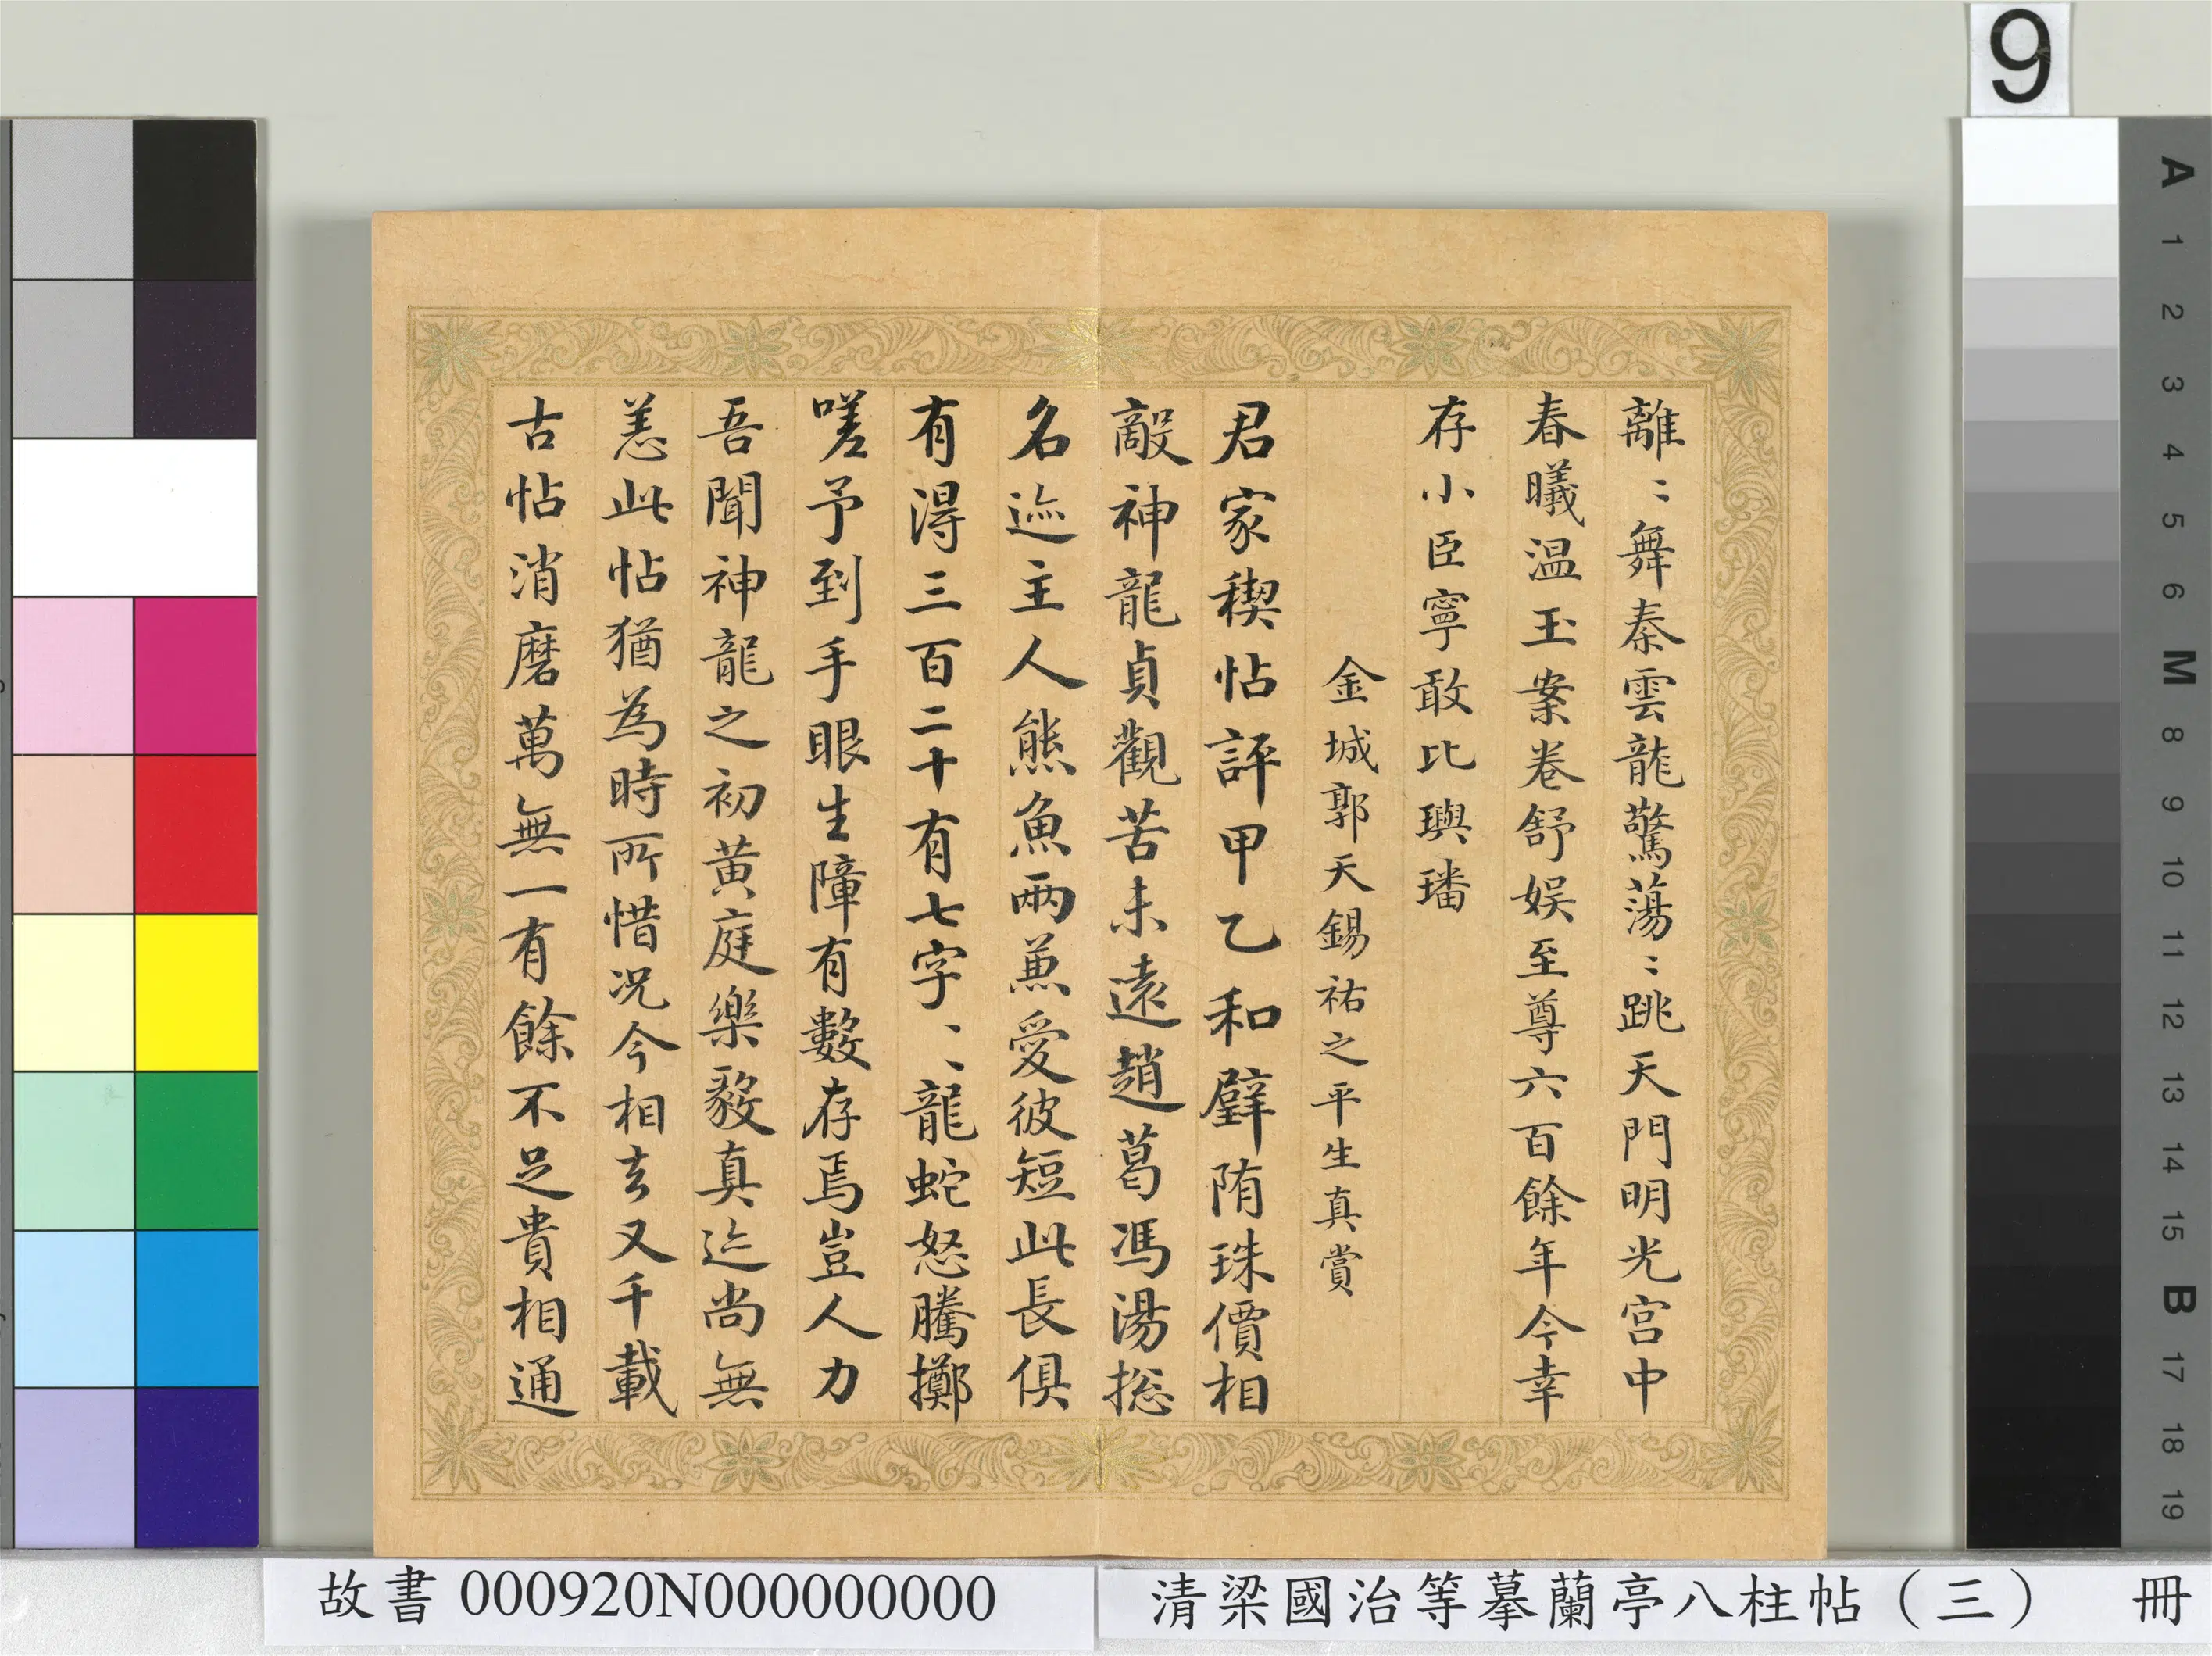 離〻舞秦雲龍驚蕩〻跳天門明光宮中
春曦温玉案卷舒娱至尊六百餘年今幸
存小臣寧敢比璵璠
金城郭天錫祐之平生真賞
君家稧帖評甲乙和璧隋珠價相
敵神龍貞觀苦未遠趙葛馮湯捴
名迹主人熊魚兩兼愛彼短此長俱
有淂三百二十有七字〻〻龍蛇怒騰擲
嗟予到手眼生障有數存焉豈人力
吾聞神龍之初黄庭樂毅真迹尚無
恙此帖猶為時所惜况今相去又千載
古帖消磨萬無一有餘不足貴相通
9
A
1
2
3
4
5
6
M
8
9
10
11
12
13
14
15
B
17
18
19
故書 000920N000000000
清梁國治等摹蘭亭八柱帖（三） 冊